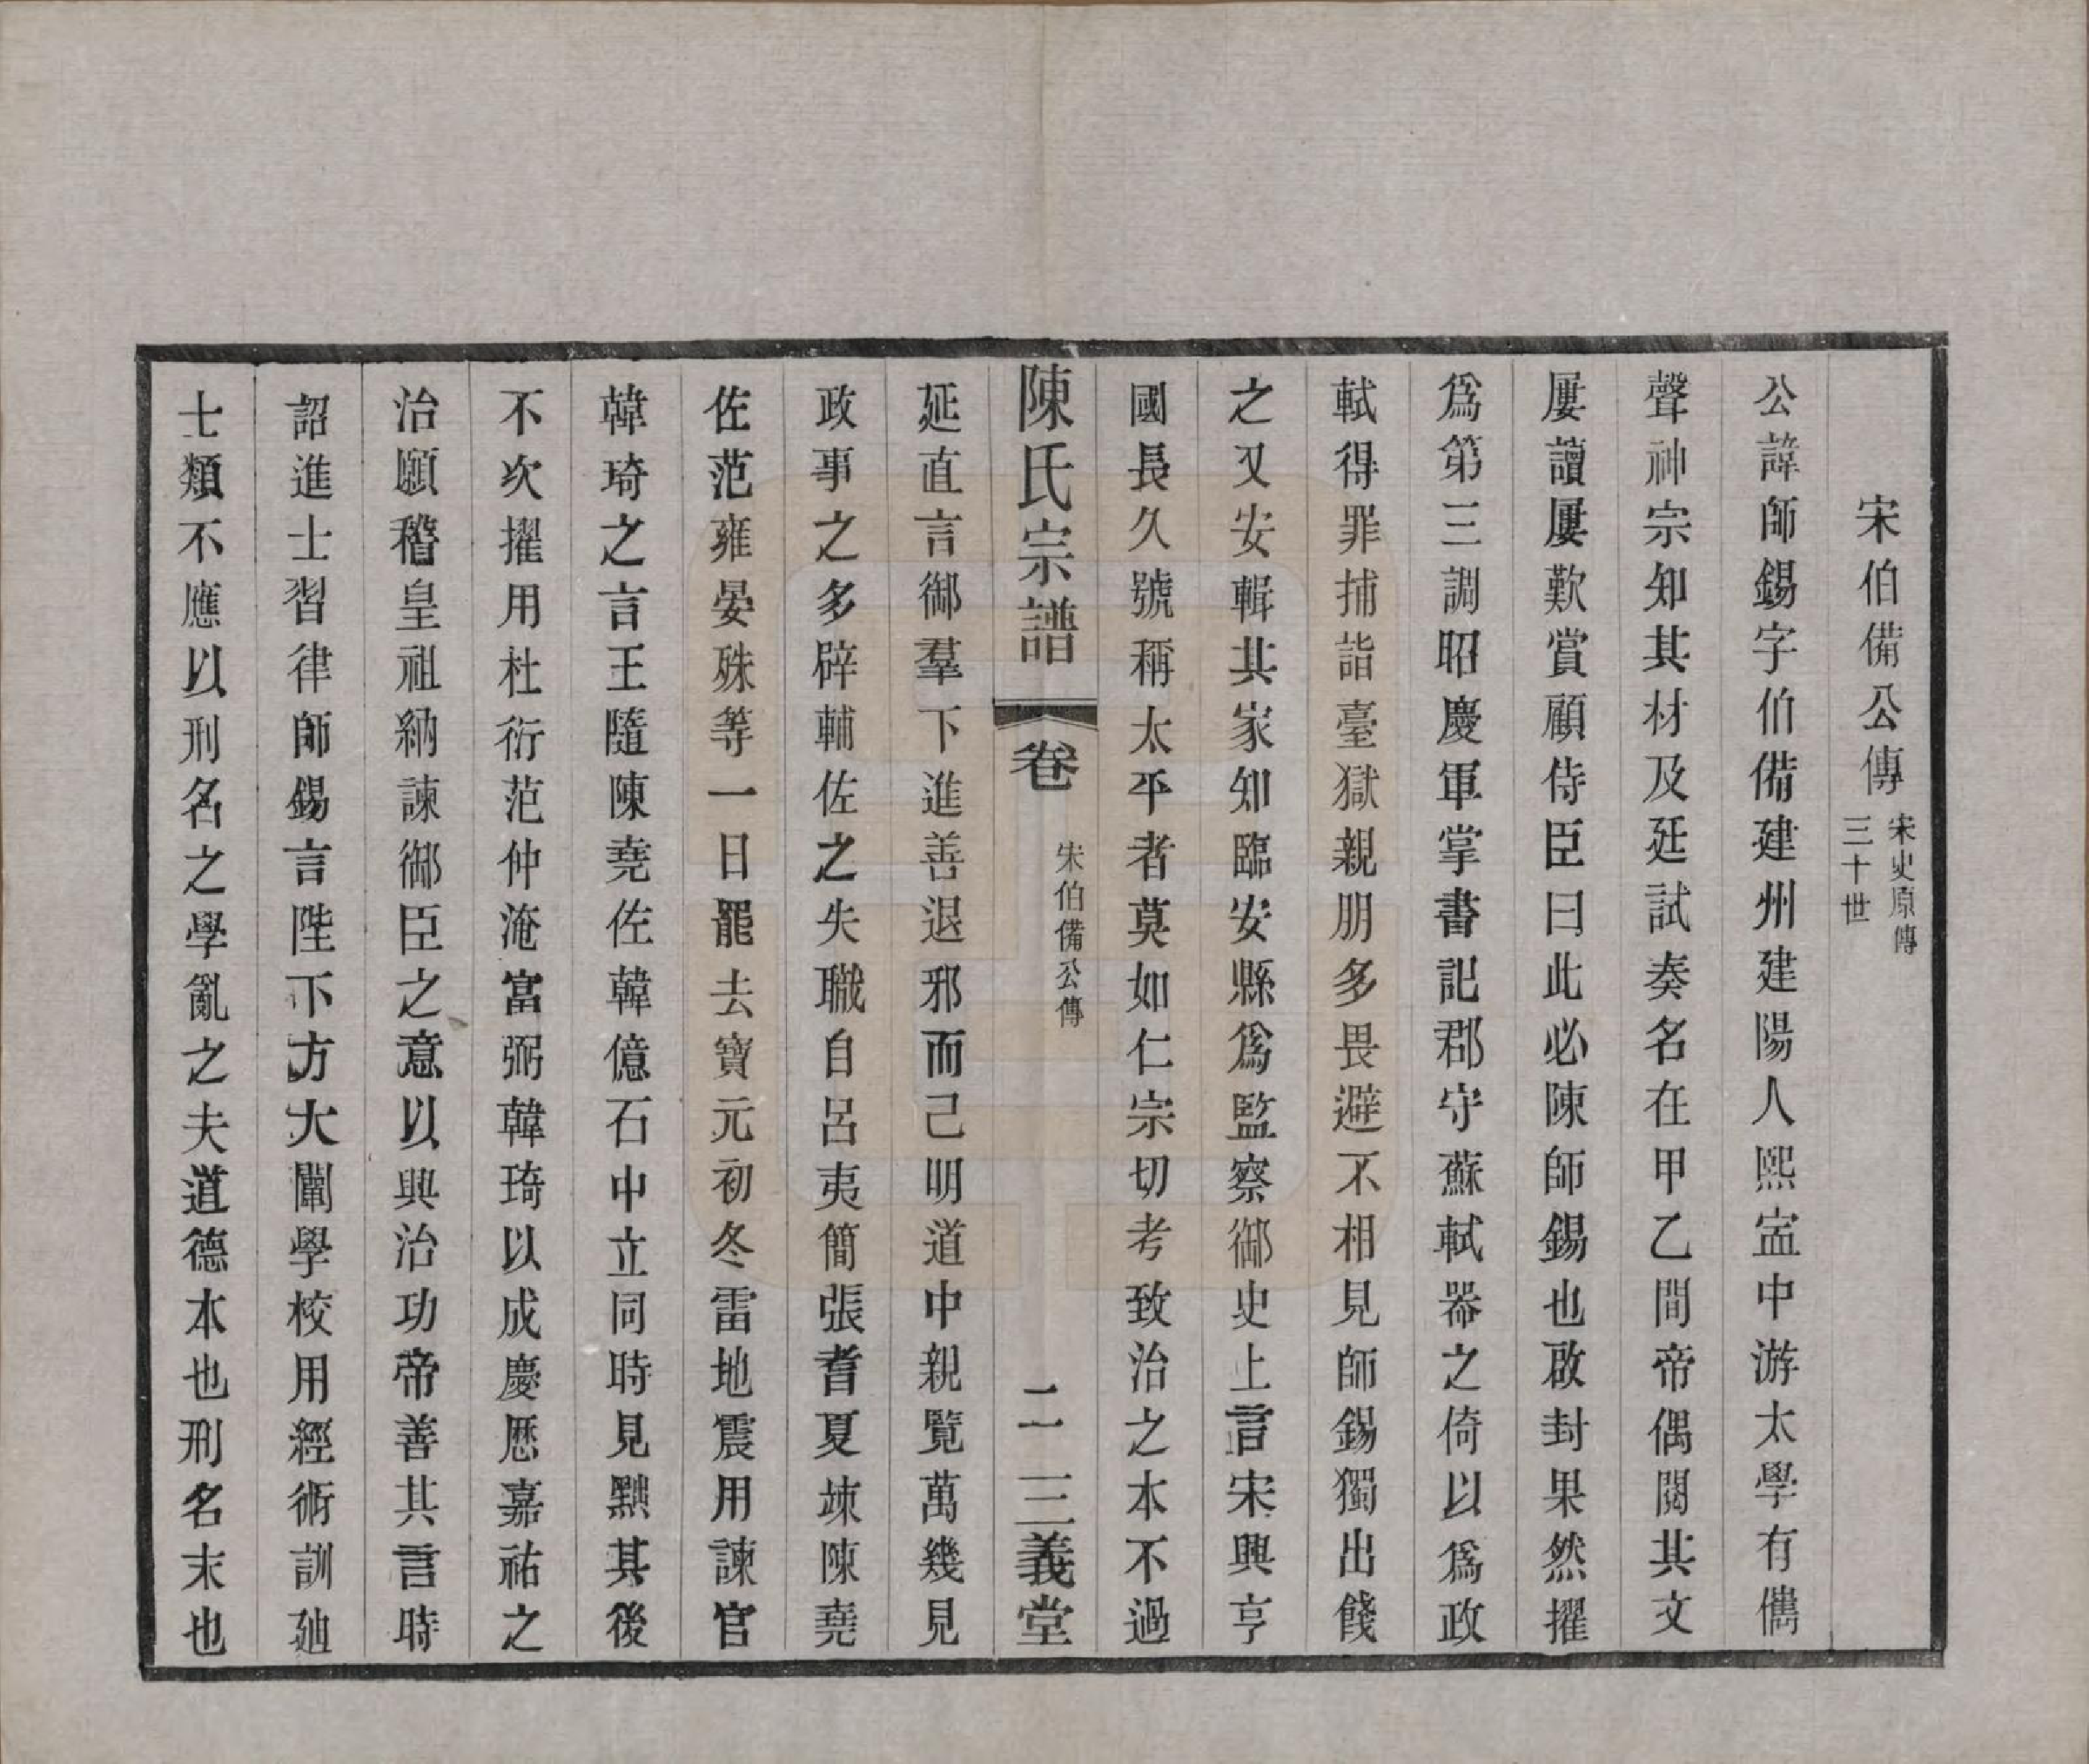 宋伯備公傳 宋史原傳 三十世
公諱師錫字伯備建州建陽人熙寍中游太學有儁
聲神宗知其材及廷試奏名在甲乙間帝偶閱其文
屢讀屢歎賞顧侍臣曰此必陳師錫也啟封果然擢
爲第三調昭慶軍掌書記郡守蘇軾器之倚以爲政
軾得罪捕詣臺獄親朋多畏避不相見師錫獨出餞
之又安輯其家知臨安縣爲監察御史上言宋興享
國長久號稱太平者莫如仁宗切考致治之本不過
陳氏宗譜 卷 宋伯備公傳 二 三義堂
延直言御羣下進善退邪而己明道中親覽萬幾見
政事之多辟輔佐之失職自呂夷簡張耆夏竦陳堯
佐范雍晏殊等一日罷去寶元初冬雷地震用諫官
韓琦之言王隨陳堯佐韓億石中立同時見黜其後
不次擢用杜衍范仲淹富弼韓琦以成慶厯嘉祐之
治願稽皇祖納諫御臣之意以興治功帝善其言時
詔進士習律師錫言陛下方大闡學校用經術訓廸
士類不應以刑名之學亂之夫道德本也刑名末也